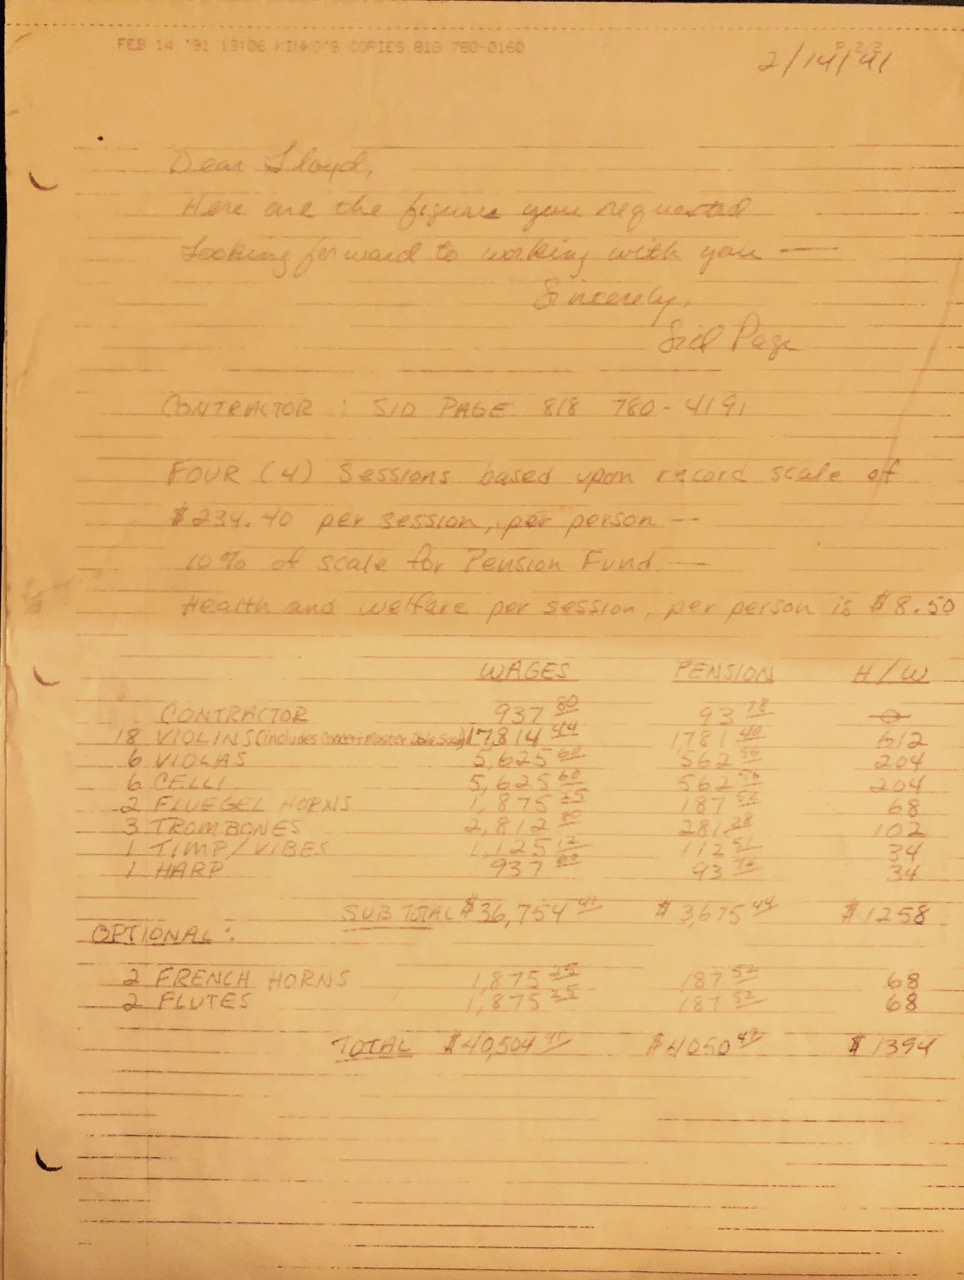 FEB 14 '91 13:06 KINKO'S COPIES 818 780-0160
P.2/2
2/14/91
Dear Lloyd,
Here are the figures you requested
Looking forward to working with you —
Sincerely,
Sid Page
CONTRACTOR : SID PAGE 818 780-4191
FOUR (4) Sessions based upon record scale of
$234.40 per session, per person —
10% of scale for Pension Fund —
Health and welfare per session, per person is $8.50
WAGES PENSION H/W
CONTRACTOR 937 80 93 78 0
18 VIOLINS (Includes Concert Master Dble Scale) 17,814 44 1781 40 612
6 VIOLAS 5,625 60 562 56 204
6 CELLI 5,625 60 562 56 204
2 FLUEGEL HORNS 1,875 25 187 52 68
3 TROMBONES 2,812 80 281.28 102
1 TIMP/VIBES 1,125 12 112 51 34
1 HARP 937 93 34
SUB TOTAL $36,754 41 $3,675 44 $1258
OPTIONAL:
2 FRENCH HORNS 1,875 25 187 52 68
2 FLUTES 1,875 25 187 52 68
TOTAL $40,504 91 $4050 49 $1394